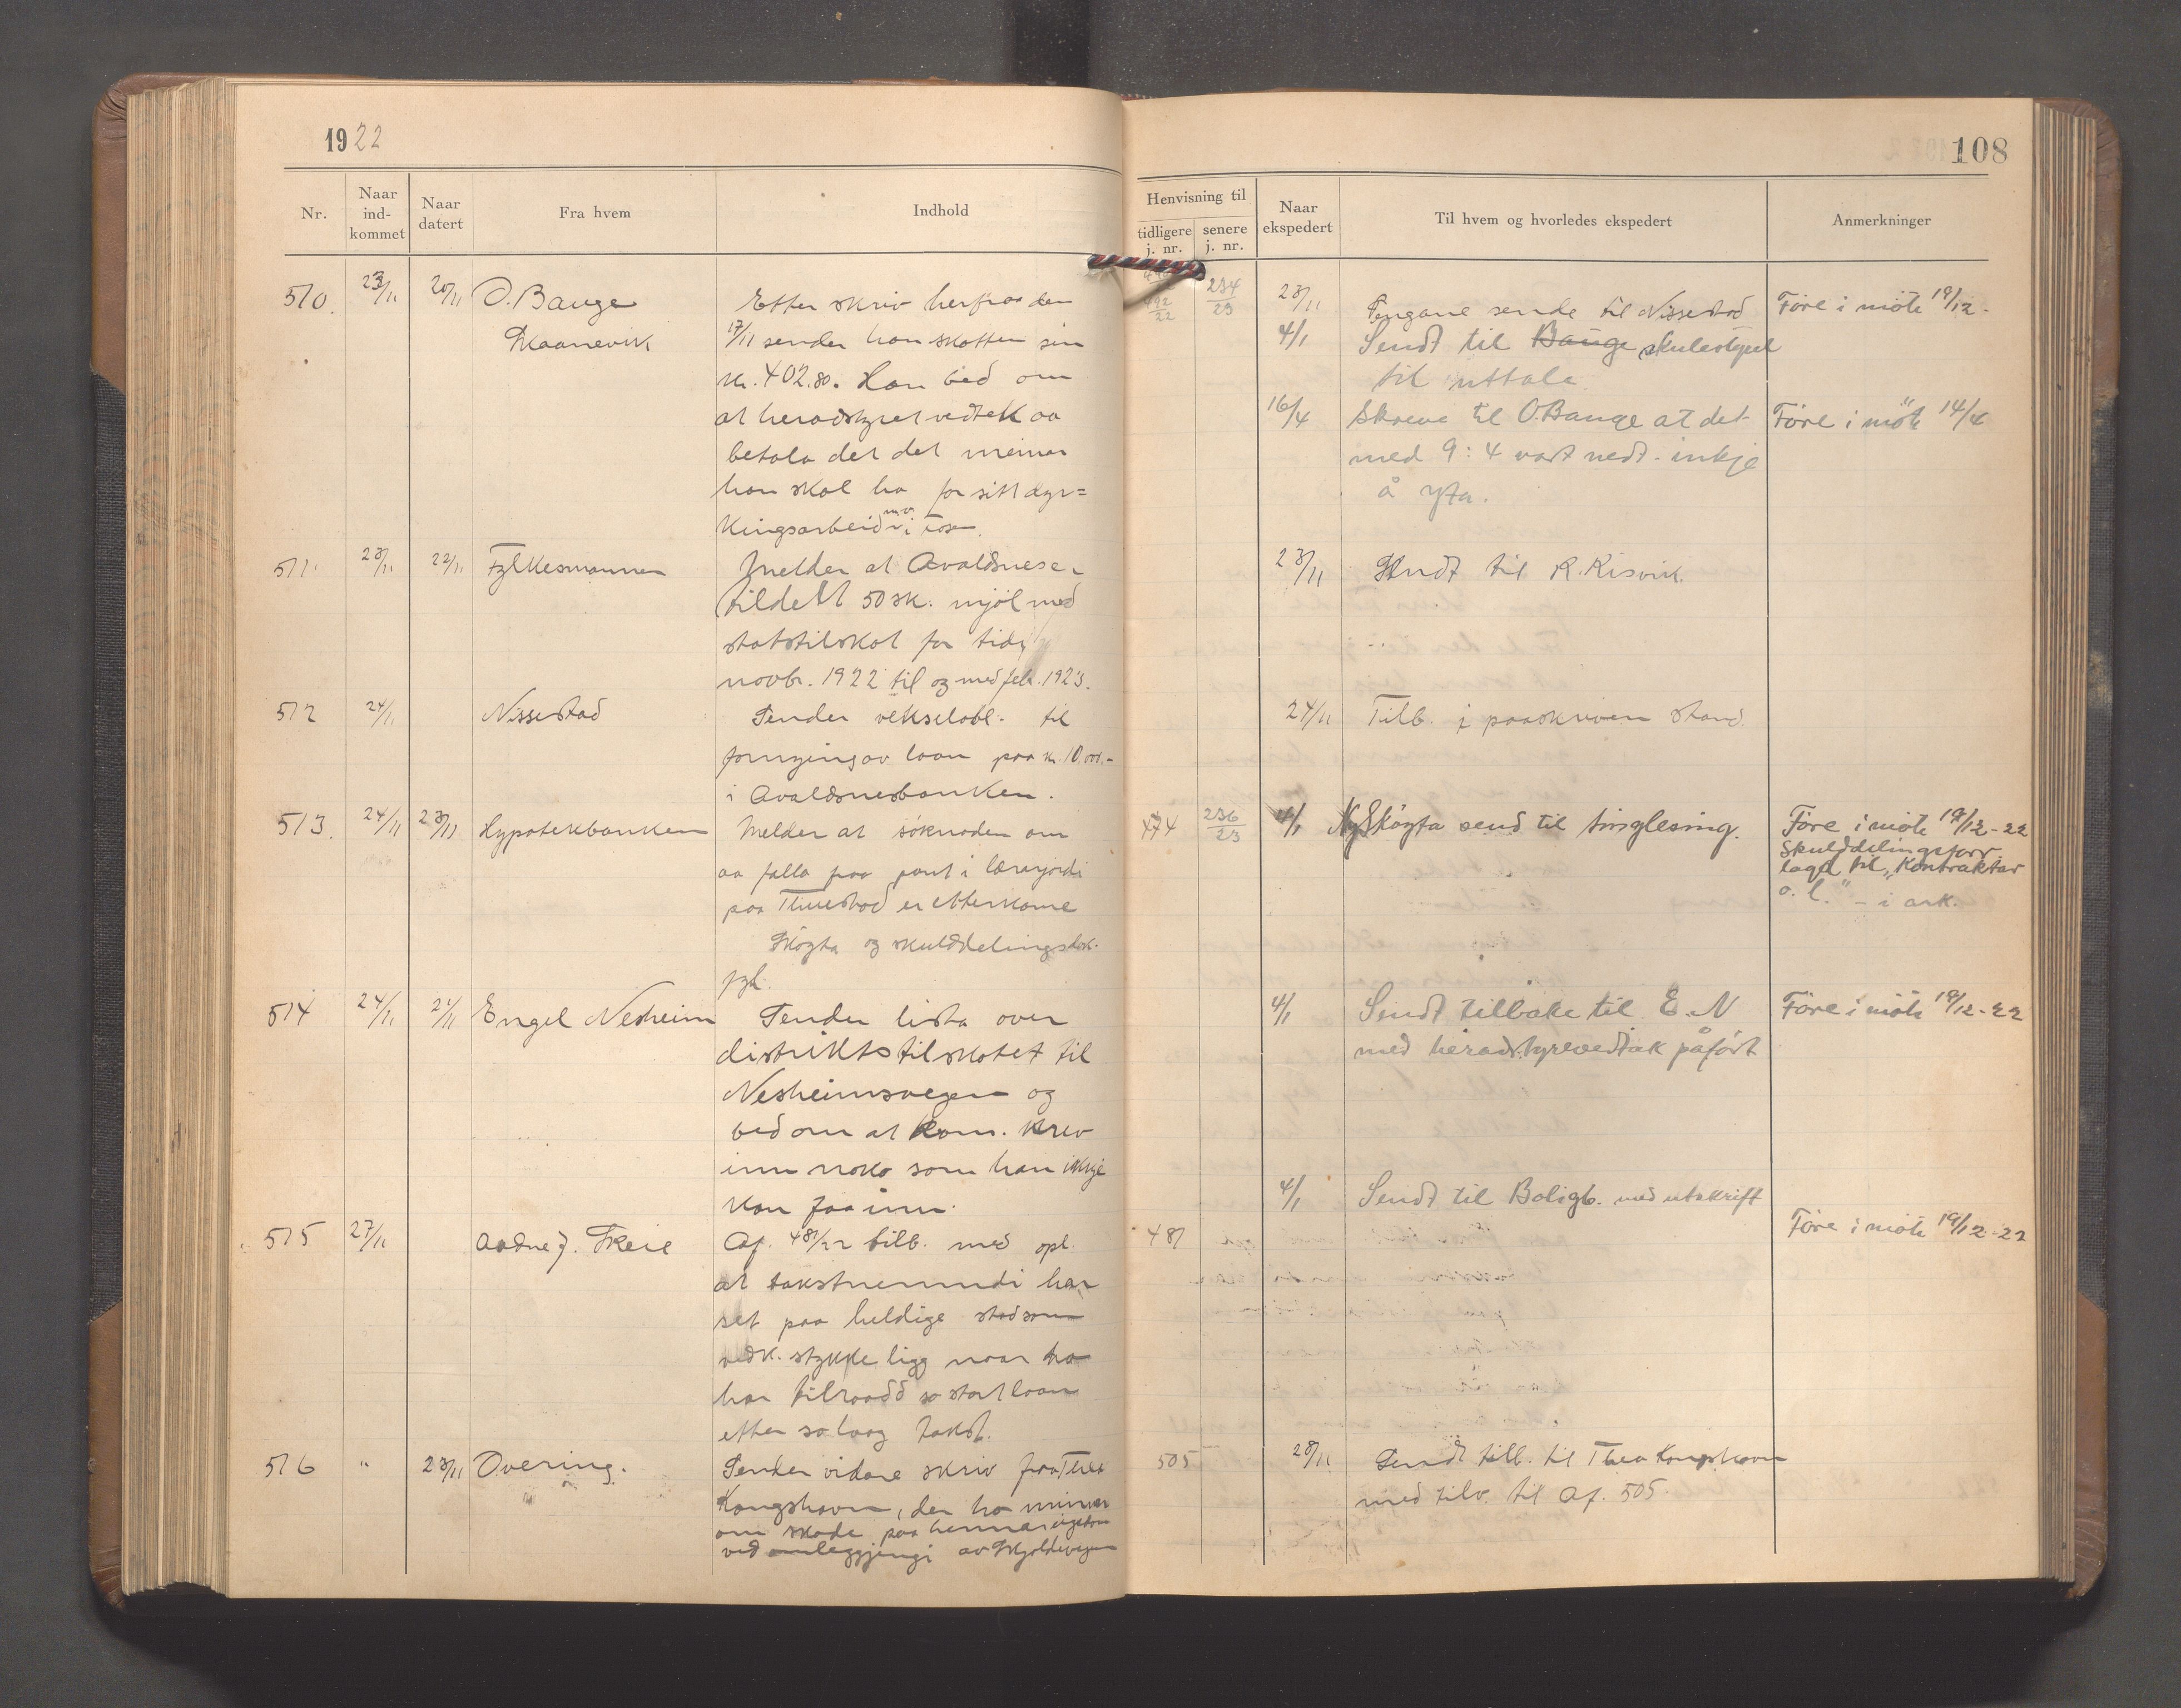 1922
108
Nr.
Naar ind-kommet
Naar datert
Fra hvem
Indhold
Henvisning til
tidligere j. nr.
senere j. nr.
Naar ekspedert
Til hvem og hvorledes ekspedert
Anmerkninger
510. 23/11 20/11 O. Bauge
Skaanevik
Etter skriv herfraa den
17/11 sender han skatten sin
kr. 402.80. Han bed om
at heradstyret vedtek aa
betala det det meiner
han skal ha for sitt dyr=
kingsarbeid m.v. i
492/22
234/23
23/11 Pengane sende til Nissestad
Före i möte 19/12.
4/1 Sendt til Bauge skulestyret
til uttale.
16/4 Skreve til O. Bauge at det
Före i möte 14/4
med 9:4 vart vedt. inkje
å yta.
511. 23/11 22/11 Fylkesmannen
Melder at Avaldsnes er
tildelt 50 sk. mjöl med
statstilskot for tidi
novbr. 1922 til og med febr. 1923.
23/11 Sendt til R. Risvik.
512 24/11 Nissestad
Sender vekselobl. til
fornying av laan paa kr. 10.000.-
i Avaldsnesbanken.
24/11 Tilb. i paaskriven stand.
513. 24/11 23/11 Hypotekbanken
Melder at söknaden om
aa falla fraa pant i lærarjordi
paa Tuestad er etterkome
Sköyta og skulddelingsdok.
fyl.
474
236/23
4/1 Ny Sköyta send til tinglesing.
Före i möte 19/12-22
Skulddelingsforr.
lagd til "Kontraktar
o. l." - i ark.
514 24/11 21/11 Engel Nesheim
Sender lista over
distriktstilskotet til
Nesheimsvegen og
bed om at kom. krev
inn noko som han ikkje
kan faa inn.
4/1 Sendt tilbake til E. N
med heradstyrevedtak påfört
Före i möte 19/12-22
515 27/11 Aadne J. Skeie
Af. 481/22 tilb. med opl.
at takstnemndi har
set paa heldige stad som
vedk. stykke ligg naar ho
har tilraadd so stort laan
etter so laag takst.
481
4/1 Sendt til Boligb. med utskrift
Före i möte 19/12-22
516 " 23/11 Overing.
Sender vidare skriv fraa Thea
Kongshavn, der ho minner
om skade paa hennar eigedom
ved omleggjingi av Skjoldevegen
505
28/11 Sendt tilb. til Thea Kongshavn
med tilv. til af. 505.